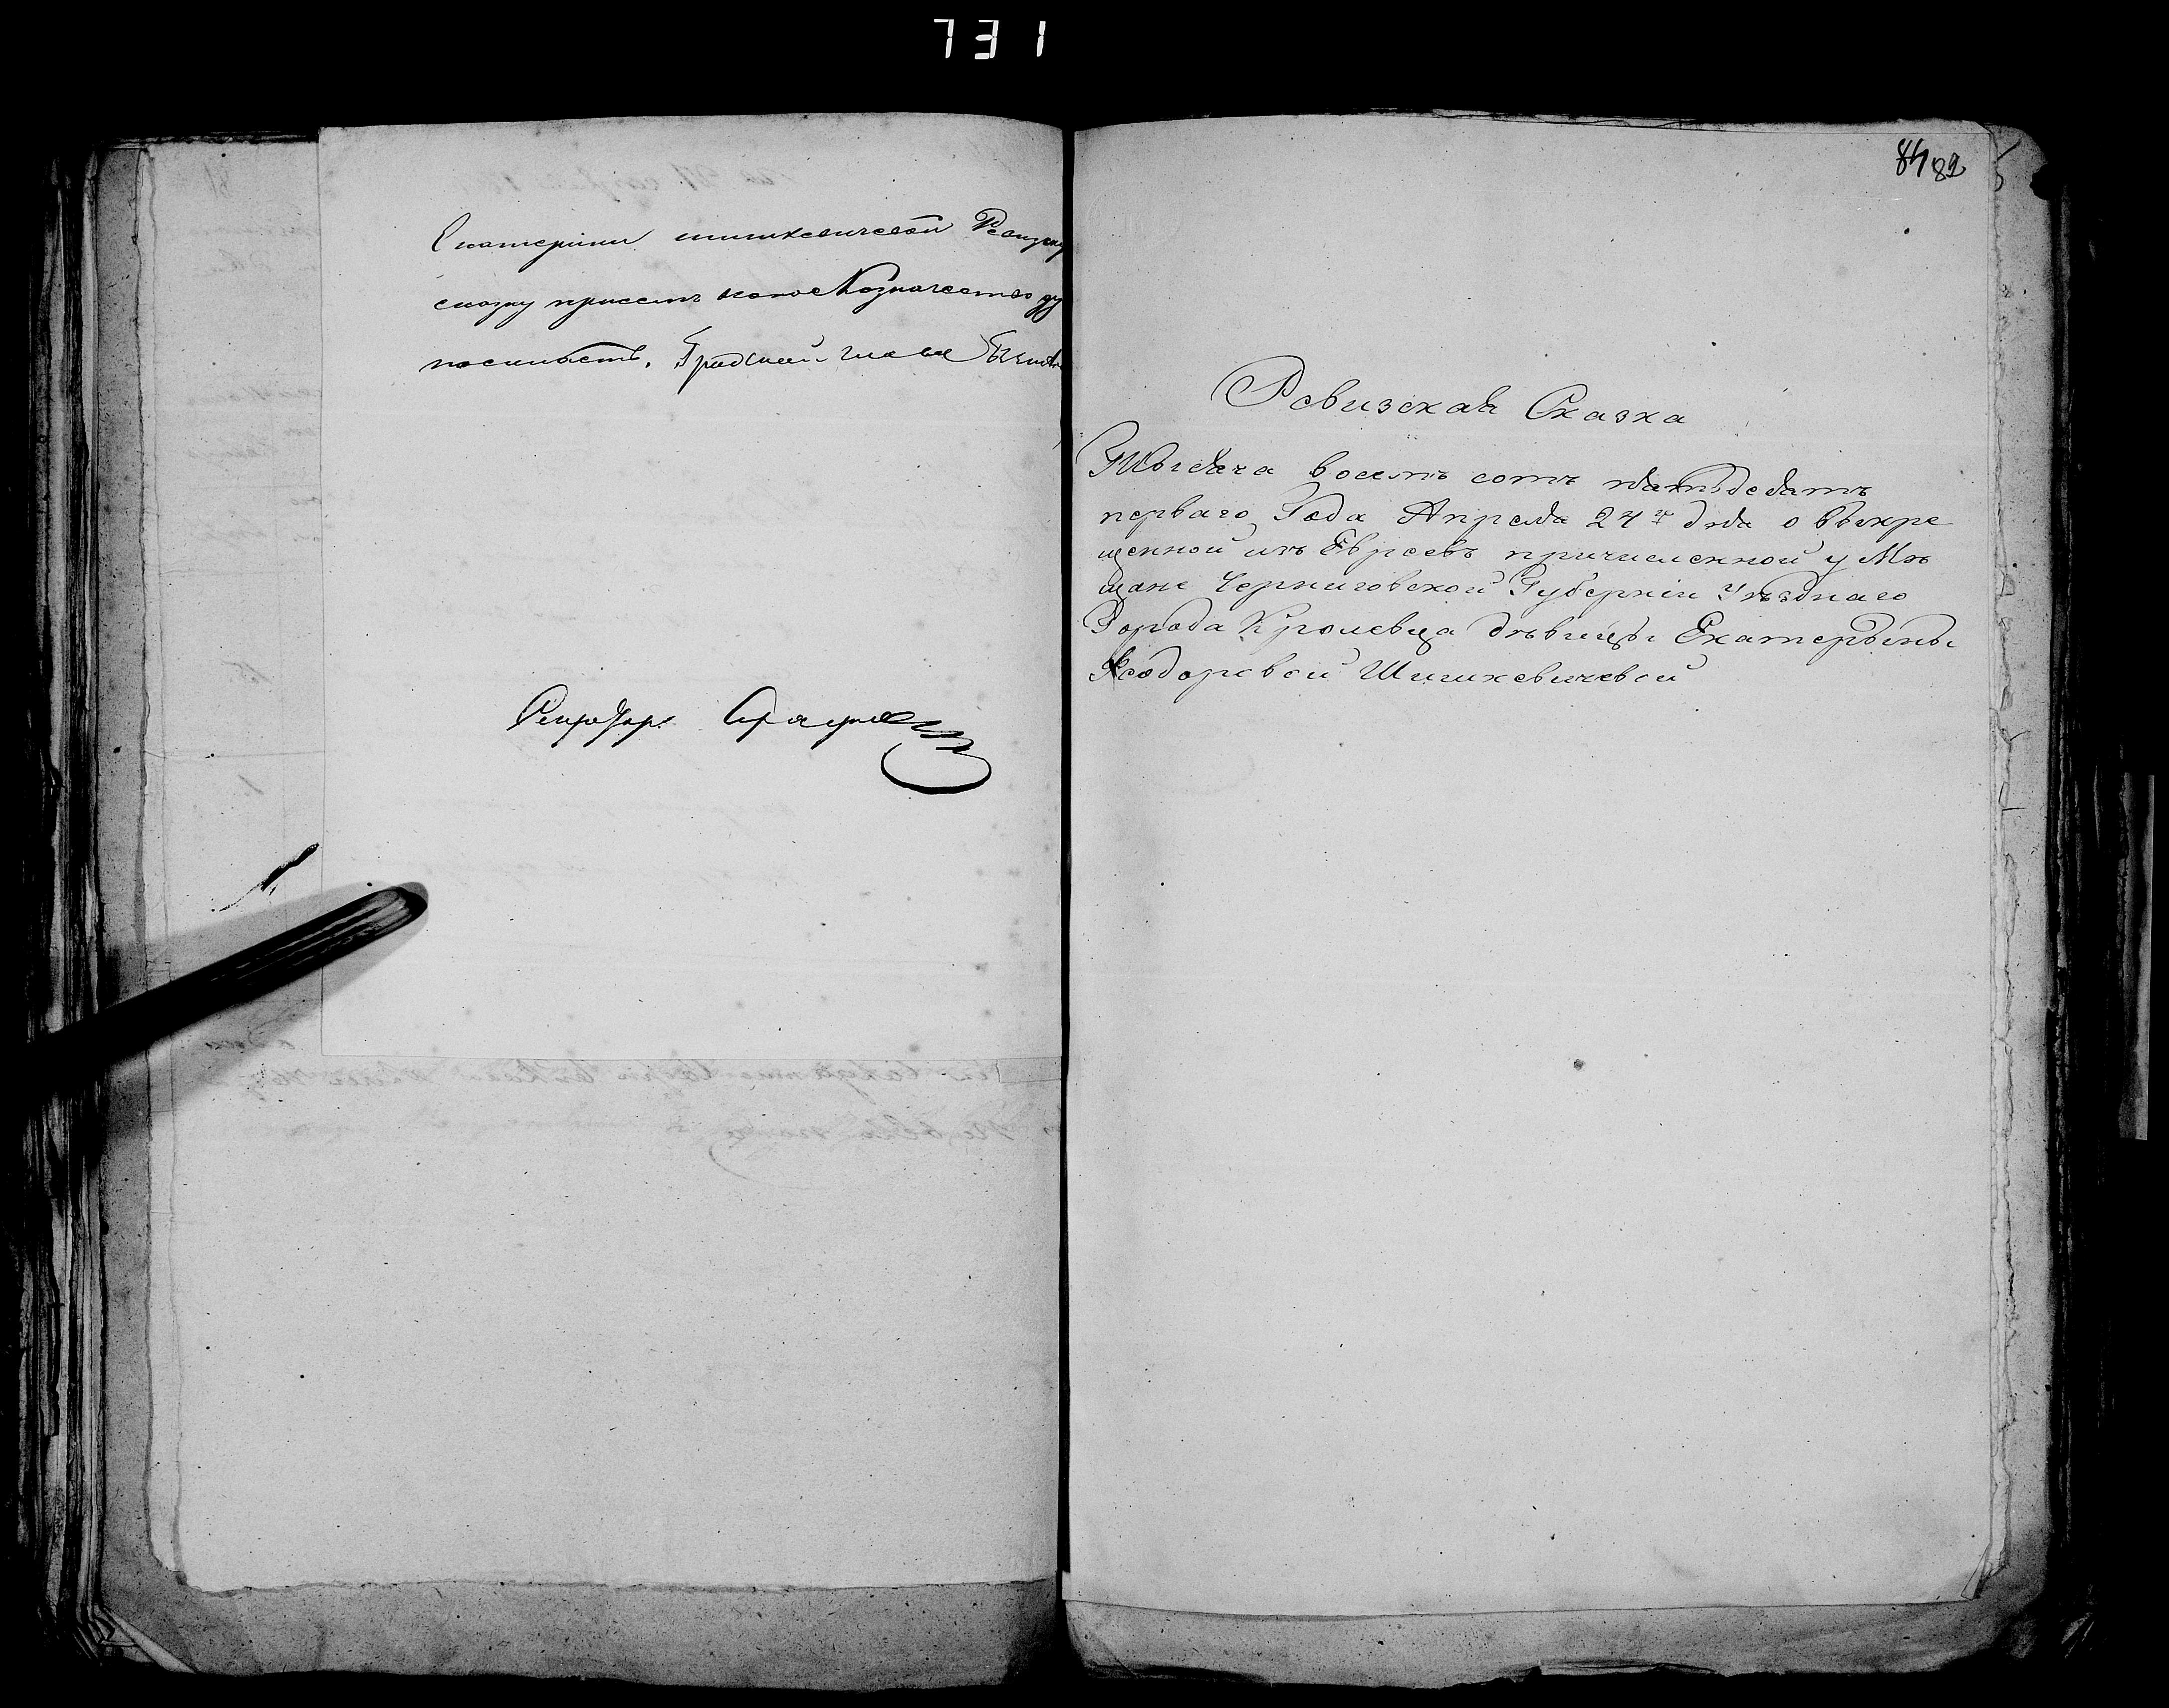 731
Екатерини шишкевичевой Ревизку
сказку присемъ
носитъ. Градской глава
Секретарь
84 82
Ревизская Сказка
Тысяча восемъ сотъ пятьдесятъ
перваго Года Апреля 24го дня о выкре
щенной изъ Евреевъ причисленной у Мѣ
щане Черниговской Губерніи Уѣзднаго
Города Кролевца дѣвицы Екатерыны
Феодоровой Шишкевичевой